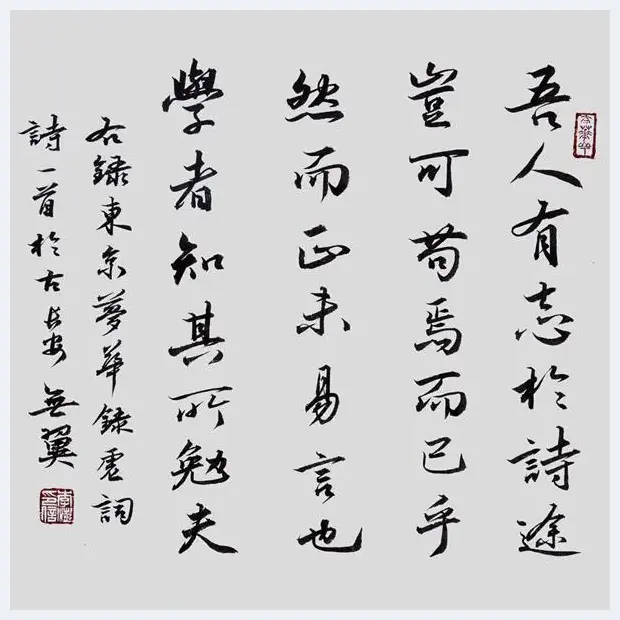 吾人有志於詩途
豈可苟焉而已乎
然而正未易言也
學者知其所勉夫
右録東京夢華録詞
詩一首於古長安無翼